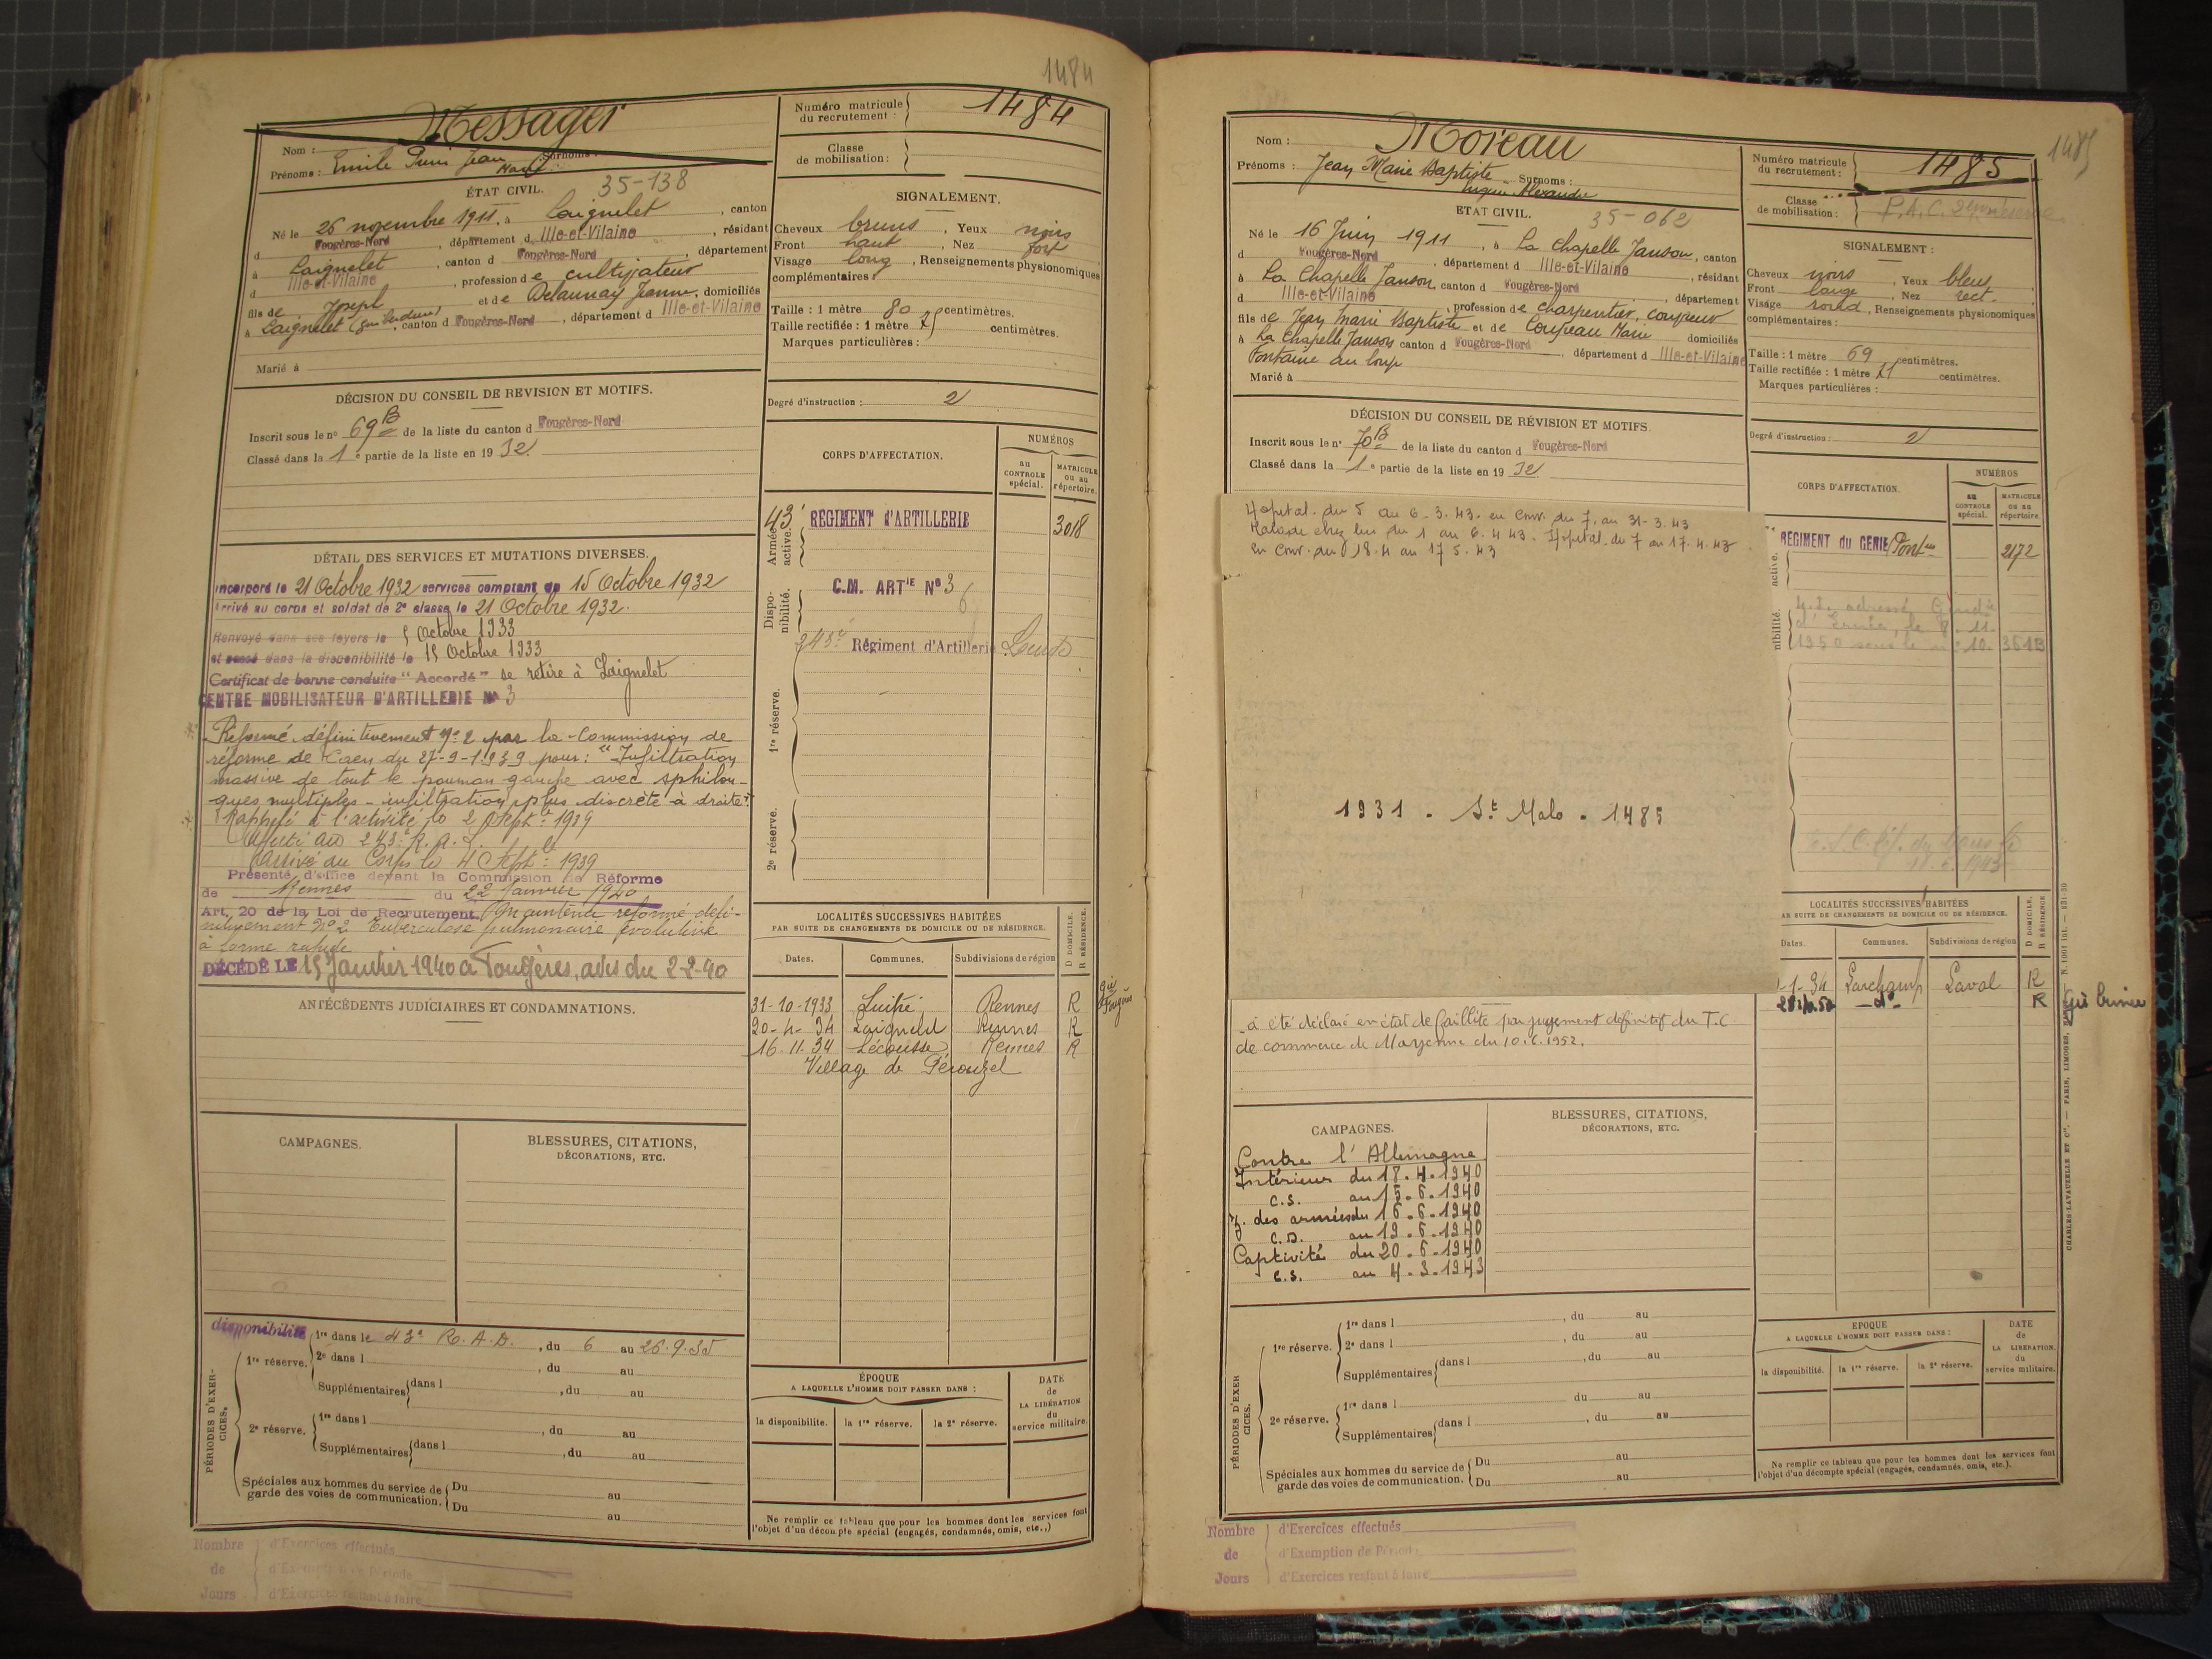 1484
Messager
Nom :
Prénoms : Emile Jean Surnoms :
35-138
ÉTAT CIVIL.
Né le 26 novembre 1911, à Laignelet, canton
d Fougères-Nord, département d Ille-et-Vilaine, résidant
à Laignelet, canton d Fougères-Nord, département
d Ille-et-Vilaine, profession de cultivateur
fils de Joseph et de Delaunay Jeanne, domiciliés
à Laignelet, canton d Fougères-Nord, département d Ille-et-Vilaine
Marié à
DÉCISION DU CONSEIL DE REVISION ET MOTIFS.
Inscrit sous le nº 69 B de la liste du canton d Fougères-Nord
Classé dans la 1e partie de la liste en 1932
DÉTAIL DES SERVICES ET MUTATIONS DIVERSES.
Incorporé le 21 Octobre 1932 services comptant du 15 Octobre 1932
Arrivé au corps et soldat de 2e classe le 21 Octobre 1932.
Renvoyé dans ses foyers le 5 Octobre 1933
et passé dans la disponibilité le 15 Octobre 1933
Certificat de bonne conduite "Accordé" se retire à Laignelet
CENTRE MOBILISATEUR D'ARTILLERIE Nº 3
Réformé définitivement nº 2 par la Commission de
réforme de Caen du 27-9-1939 pour : "Infiltration
massive de tout le poumon gauche avec
multiples - infiltration plus discrète à droite"
Rappelé à l'activité le 2 Septbre 1939
Affecté au 243e R.A.L.
Arrivé au Corps le 4 Septbre 1939
Présenté d'office devant la Commission de Réforme
de Rennes du 22 Janvier 1940
Art. 20 de la Loi de Recrutement. Maintenu réformé défi-
nitivement nº 2 Tuberculose pulmonaire évolutive
à forme rapide
DÉCÉDÉ LE 15 Janvier 1940 à Fougères, avis du 2-2-40
ANTÉCÉDENTS JUDICIAIRES ET CONDAMNATIONS.
CAMPAGNES.
BLESSURES, CITATIONS,
DÉCORATIONS, ETC.
PÉRIODES D'EXER-
CICES.
disponibilité
1re réserve. 1re dans le 43e R.A.D., du 6 au 26.9.35
2e dans l , du au
Supplémentaires dans l , du au
2e réserve. 1re dans l , du au
Supplémentaires dans l , du au
Spéciales aux hommes du service de Du au
garde des voies de communication. Du au
Nombre d'Exercices effectués
de d'Exemption de Période
Jours d'Exercices restant à faire
Numéro matricule
du recrutement : 1484
Classe
de mobilisation :
SIGNALEMENT.
Cheveux bruns, Yeux noirs
Front haut, Nez fort
Visage long, Renseignements physionomiques
complémentaires :
Taille : 1 mètre 80 centimètres.
Taille rectifiée : 1 mètre centimètres.
Marques particulières :
Degré d'instruction : 2
CORPS D'AFFECTATION.
NUMÉROS
au
CONTROLE
spécial.
MATRICULE
ou au
répertoire.
Armée
active.
43e RÉGIMENT d'ARTILLERIE 3018
Dispo-
nibilité.
C.M. ARTIE Nº 3
243e Régiment d'Artillerie Lourde
1re réserve.
2e réserve.
LOCALITÉS SUCCESSIVES HABITÉES
PAR SUITE DE CHANGEMENTS DE DOMICILE OU DE RÉSIDENCE.
D DOMICILE.
R RÉSIDENCE.
Dates. Communes. Subdivisions de région
31-10-1933 Luitré Rennes R
20-4-34 Laignelet Rennes R
16.11.34 Lécousse Rennes R
Village de
ÉPOQUE
A LAQUELLE L'HOMME DOIT PASSER DANS :
DATE
de
LA LIBÉRATION
du
service militaire.
la disponibilité. la 1re réserve. la 2e réserve.
Ne remplir ce tableau que pour les hommes dont les services font
l'objet d'un décompte spécial (engagés, condamnés, omis, etc.,)
1485
Nom : Moreau
Prénoms : Jean Marie Baptiste Surnoms :
Alexandre
ÉTAT CIVIL.
35-062
Né le 16 Juin 1911, à La Chapelle Janson, canton
d Fougères-Nord, département d Ille-et-Vilaine, résidant
à La Chapelle Janson, canton d Fougères-Nord, département
d Ille-et-Vilaine, profession de Charpentier, couvreur
fils de Jean Marie Baptiste et de Coupeau Marie domiciliés
à La Chapelle Janson canton d Fougères-Nord, département d Ille-et-Vilaine
Fontaine au loup
Marié à
DÉCISION DU CONSEIL DE RÉVISION ET MOTIFS
Inscrit sous le nº 70 B de la liste du canton d Fougères-Nord
Classé dans la 1e partie de la liste en 1932
Hopital du 5 au 6-3.43. en Conv. du 7. au 31-3.43
Malade chez lui du 1 au 6.4.43. Hopital du 7 au 17.4.43
en Conv. du 18.4 au 17.5.43
1931 - St Malo - 1485
a été déclaré en état de faillite par jugement définitif du T.C
de commerce de Mayenne du 10.6.1952.
CAMPAGNES.
Contre l'Allemagne
Intérieur du 18.4.1940
C.S. au 15.6.1940
Z. des armées du 16.6.1940
C.D. au 19.6.1940
Captivité du 20.6.1940
C.S. au 4.3.1943
BLESSURES, CITATIONS,
DÉCORATIONS, ETC.
PÉRIODES D'EXER
CICES.
1re réserve. 1re dans l , du au
2e dans l , du au
Supplémentaires dans l , du au
du au
2e réserve. 1re dans l
Supplémentaires dans l , du au
Spéciales aux hommes du service de Du au
garde des voies de communication. Du au
Nombre d'Exercices effectués
de d'Exemption de Période
Jours d'Exercices restant à faire
Numéro matricule
du recrutement : 1485
Classe
de mobilisation :
SIGNALEMENT :
Cheveux noirs, Yeux bleus
Front large, Nez rect.
Visage rond, Renseignements physionomiques
complémentaires :
Taille : 1 mètre 69 centimètres.
Taille rectifiée : 1 mètre 71 centimètres.
Marques particulières :
Degré d'instruction : 2
CORPS D'AFFECTATION.
NUMÉROS
au
CONTROLE
spécial.
MATRICULE
ou au
répertoire.
active.
RÉGIMENT du GÉNIE 2172
nibilité.
LOCALITÉS SUCCESSIVES HABITÉES
AR SUITE DE CHANGEMENTS DE DOMICILE OU DE RÉSIDENCE.
D DOMICILE.
R RÉSIDENCE
Dates. Communes. Subdivisions de région
-1-34 Larchamp Laval R
28.10.50 -dº- R
ÉPOQUE
A LAQUELLE L'HOMME DOIT PASSER DANS :
DATE
de
LA LIBÉRATION.
du
service militaire.
la disponibilité. la 1re réserve. la 2e réserve.
Ne remplir ce tableau que pour les hommes dont les services font
l'objet d'un décompte spécial (engagés, condamnés, omis, etc.).